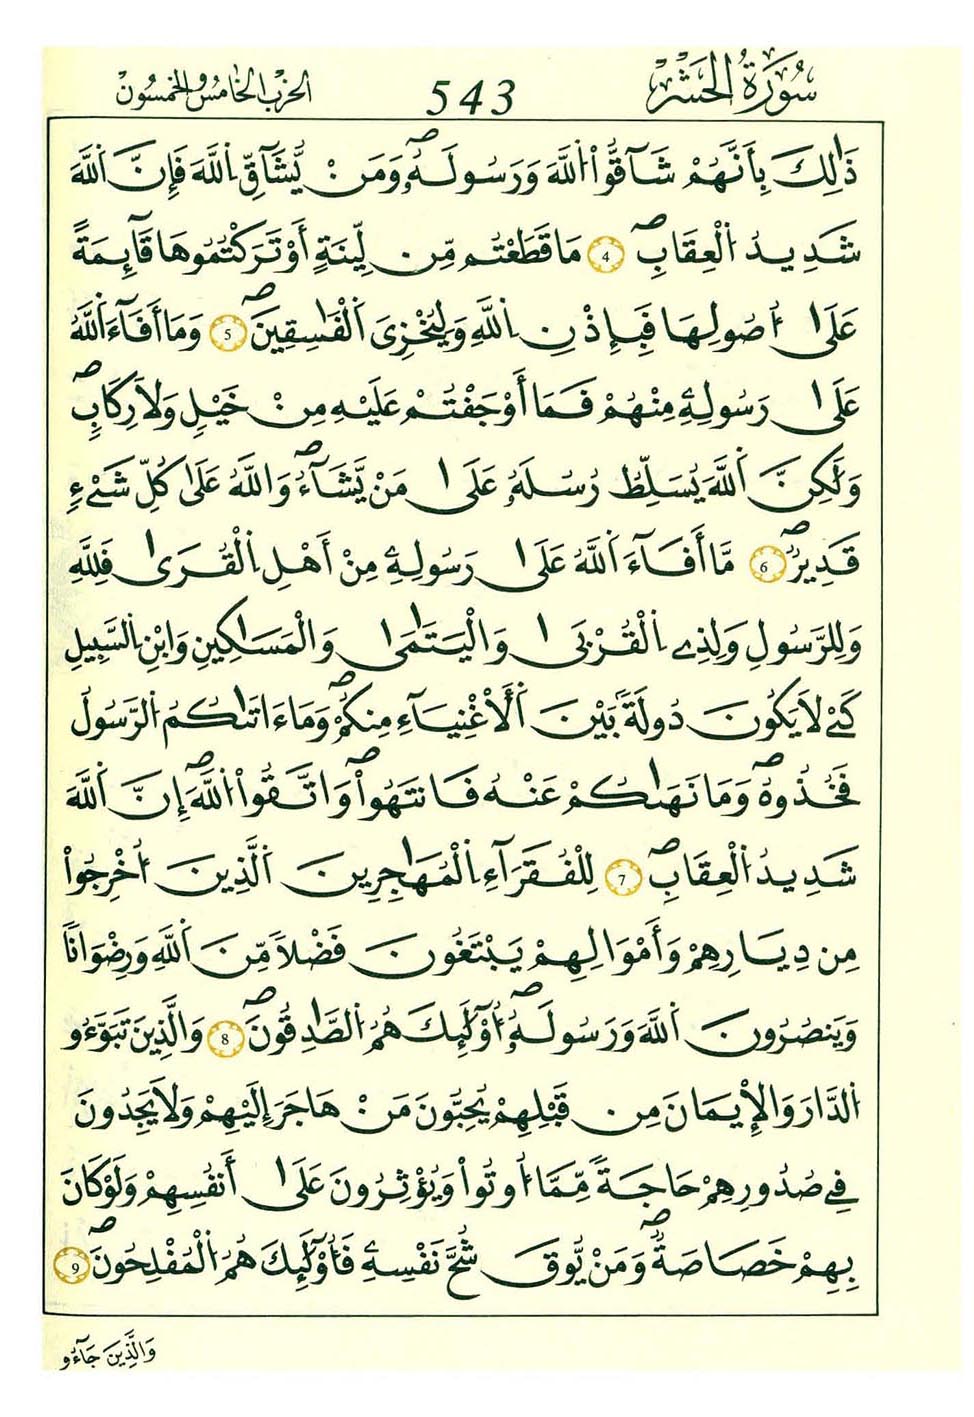 سُورَةُ الْحَشْرِ 543 الحزب الخامس والخمسون
ذَٰلِكَ بِأَنَّهُمْ شَآقُّواْ اللَّهَ وَرَسُولَهُۥ وَمَنْ يُّشَآقِّ اللَّهَ فَإِنَّ اللَّهَ
شَدِيدُ الْعِقَابِ 4 مَا قَطَعْتُم مِّن لِّينَةٍ أَوْ تَرَكْتُمُوهَا قَآئِمَةً
عَلَىٰٓ أُصُولِهَا فَبِإِذْنِ اللَّهِ وَلِيُخْزِيَ الْفَٰسِقِينَ 5 وَمَا أَفَآءَ اللَّهُ
عَلَىٰ رَسُولِهِۦ مِنْهُمْ فَمَا أَوْجَفْتُمْ عَلَيْهِ مِنْ خَيْلٍ وَلَا رِكَابٍ
وَلَٰكِنَّ اللَّهَ يُسَلِّطُ رُسُلَهُۥ عَلَىٰ مَنْ يَّشَآءُ وَاللَّهُ عَلَىٰ كُلِّ شَےْءٍ
قَدِيرٌ 6 مَّا أَفَآءَ اللَّهُ عَلَىٰ رَسُولِهِۦ مِنْ أَهْلِ الْقُرَىٰ فَلِلَّهِ
وَلِلرَّسُولِ وَلِذِے الْقُرْبَىٰ وَالْيَتَٰمَىٰ وَالْمَسَٰكِينِ وَابْنِ السَّبِيلِ
كَےْ لَا يَكُونَ دُولَةً بَيْنَ الْأَغْنِيَآءِ مِنكُمْ وَمَا ءَاتَىٰكُمُ الرَّسُولُ
فَخُذُوهُ وَمَا نَهَىٰكُمْ عَنْهُ فَانتَهُواْ وَاتَّقُواْ اللَّهَ إِنَّ اللَّهَ
شَدِيدُ الْعِقَابِ 7 لِلْفُقَرَآءِ الْمُهَٰجِرِينَ الَّذِينَ أُخْرِجُواْ
مِن دِيَٰرِهِمْ وَأَمْوَالِهِمْ يَبْتَغُونَ فَضْلًا مِّنَ اللَّهِ وَرِضْوَانًا
وَيَنصُرُونَ اللَّهَ وَرَسُولَهُۥ أُوْلَٰٓئِكَ هُمُ الصَّٰدِقُونَ 8 وَالَّذِينَ تَبَوَّءُو
الدَّارَ وَالْإِيمَانَ مِن قَبْلِهِمْ يُحِبُّونَ مَنْ هَاجَرَ إِلَيْهِمْ وَلَا يَجِدُونَ
فِے صُدُورِهِمْ حَاجَةً مِّمَّا أُوتُواْ وَيُؤْثِرُونَ عَلَىٰ أَنفُسِهِمْ وَلَوْ كَانَ
بِهِمْ خَصَاصَةٌ وَمَنْ يُّوقَ شُحَّ نَفْسِهِۦ فَأُوْلَٰٓئِكَ هُمُ الْمُفْلِحُونَ 9
وَالَّذِينَ جَآءُو